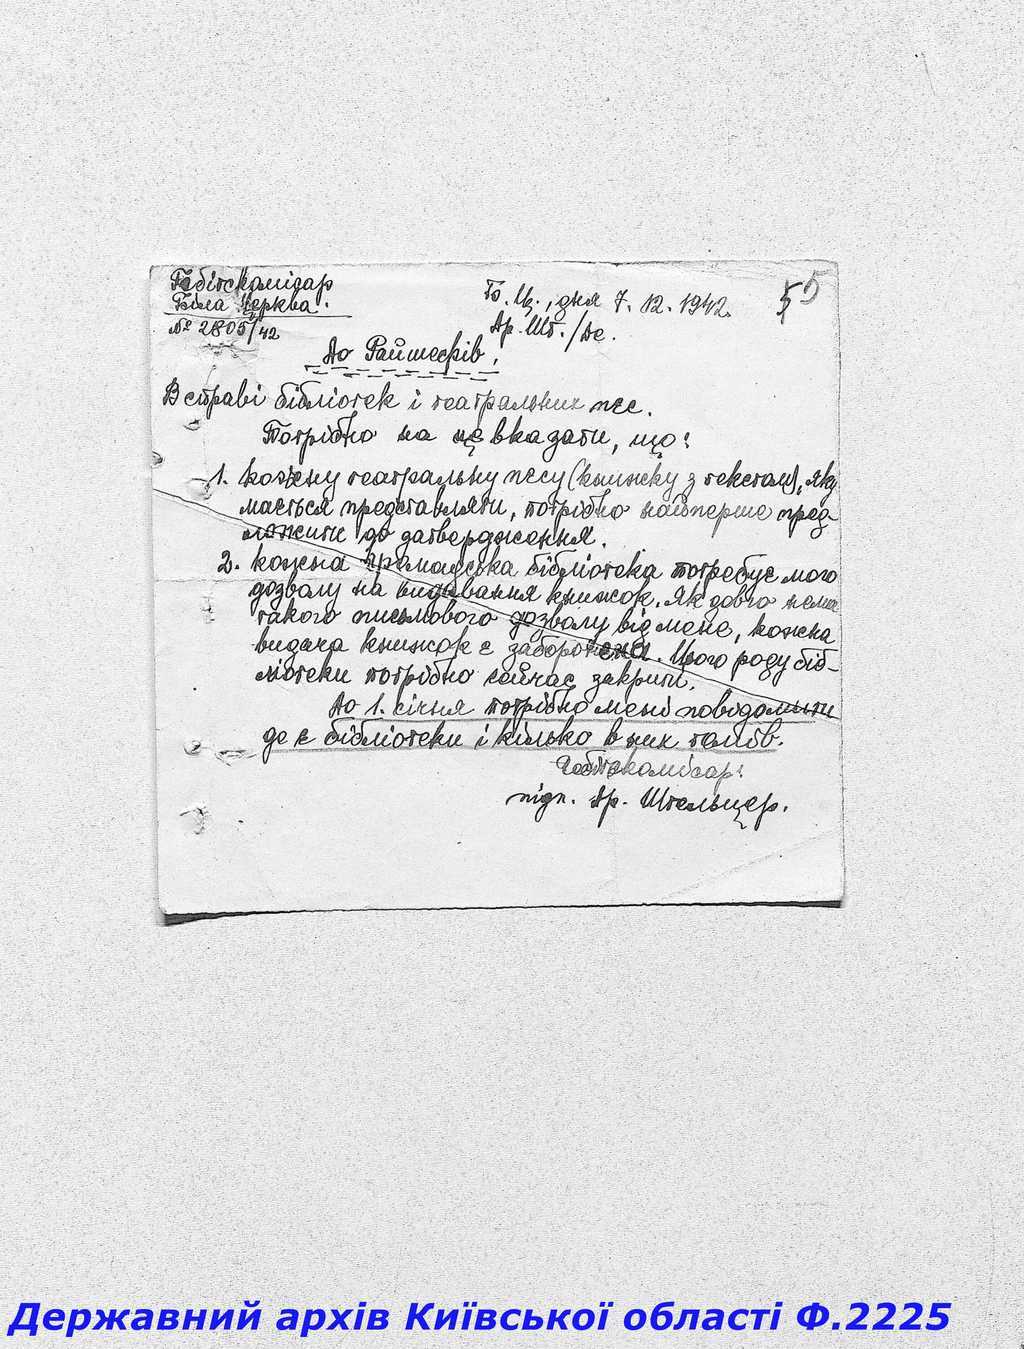 Гебітскомісар Б. Ц., дня 7. 12. 1942. 55
Біла Церква. Др. Шт./Де.
№ 2805/42
До Райшефів.
В справі бібліотек і театральних пєс.
Потрібно на це вказати, що:
1. кожну театральну пєсу (книжку з текстом), яку
мається представляти, потрібно найперше пред-
ложити до затвердження.
2. кожна громадська бібліотека потребує мого
дозволу на видавання книжок. Як довго нема
такого письмового дозволу від мене, кожна
видача книжок є заборонена. Цього роду біб-
ліотеки потрібно сейчас закрити.
До 1. січня потрібно мені повідомити
де є бібліотеки і кілько в них томів.
Гебітскомісар:
підп. Др. Штельцер.
Державний архів Київської області Ф.2225